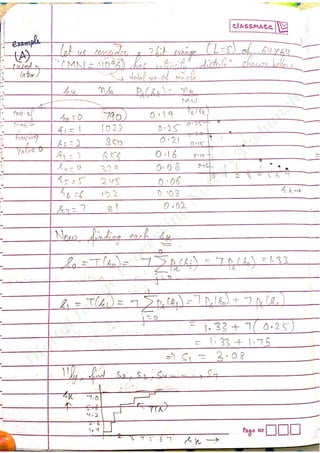 classmate
Example
(A)
Let us consider a 3bit image (L=8) of 64x64
(MN = 4096) has intensity distribn shown below.
total no. of pixels
rk nk Pr(rk) = nk
MN
no. of
having
value 0
r0=0 790 0.19
r1=1 1023 0.25
r2=2 850 0.21
r3=3 656 0.16
r4=4 329 0.08
r5=5 245 0.06
r6=6 122 0.03
r7=7 81 0.02
Pr(rk)
0.25
0.15
0 1 2 3 4 5 6 7
rk→
Now, finding each sk
s0 = T(r0) = 7 Σ Pr(rj) = 7 Pr(r0) = 1.33
j=0
s1 = T(r1) = 7 Σ Pr(rj) = 7 Pr(r0) + 7 Pr(r1)
j=0
= 1.33 + 7(0.25)
= 1.33 + 1.75
⇒ s1 = 3.08
lly, find s2, s3, s4 ---, s7
sk 7.0
5.6
4.2
2.8
1.4
T(r)
2 3 4 5 6 7 rk →
Page No